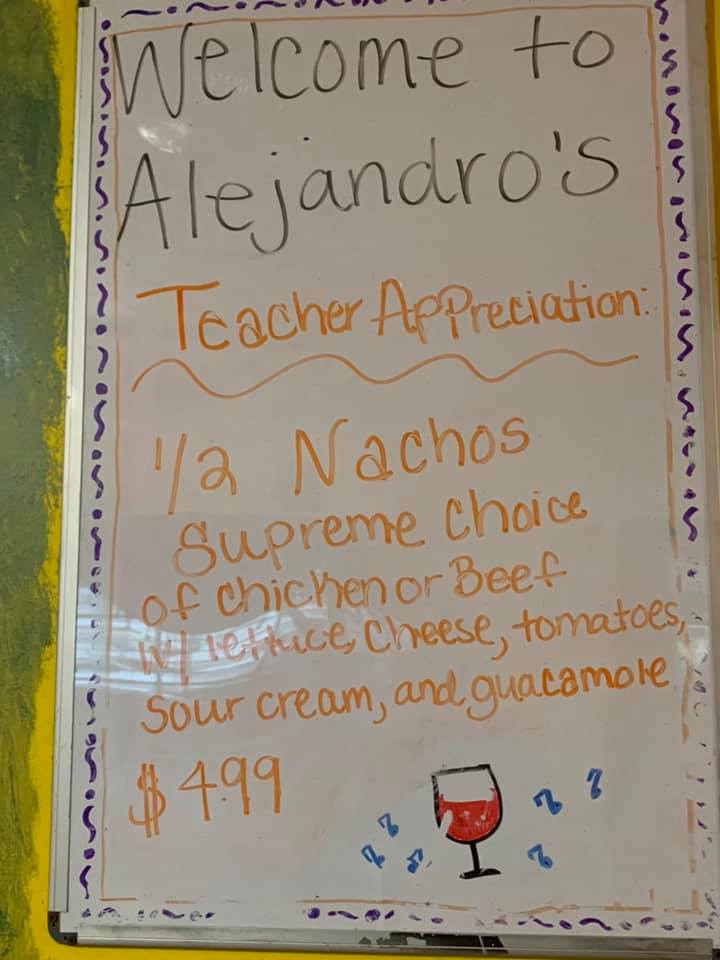 Welcome to
Alejandro's
Teacher Appreciation:
1/2 Nachos
Supreme choice
of chicken or Beef
w/ lettuce, cheese, tomatoes,
sour cream, and guacamole
$4.99